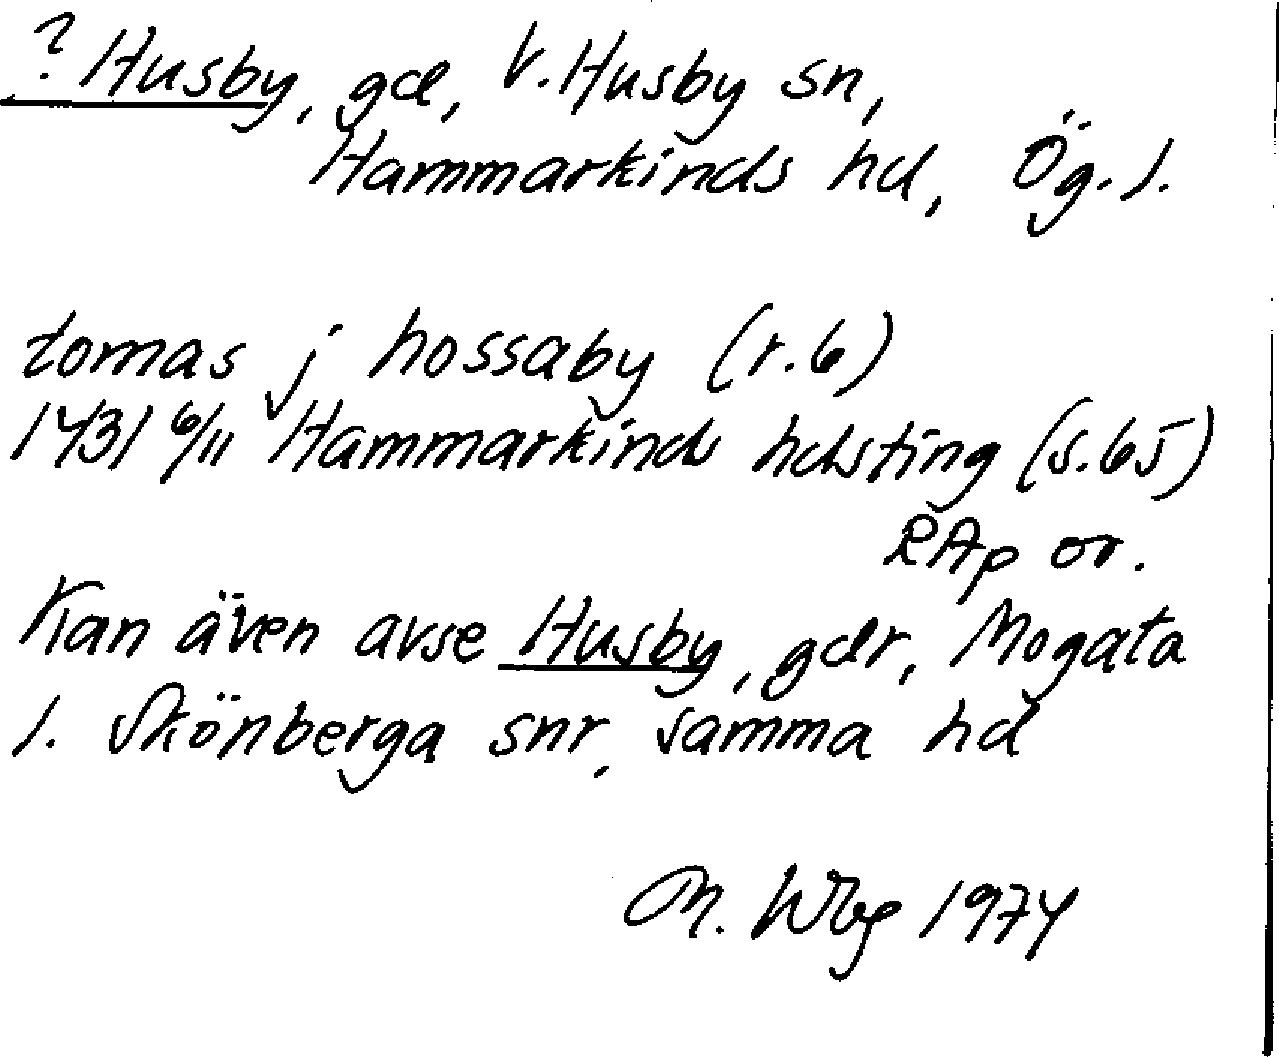 ? Husby, gd, V. Husby sn,
Hammarkinds hd, Ög. l.
tomas j hossaby (r.6)
1431 6/11 Hammarkinds hdsting (s.65)
RAp or.
Kan även avse Husby, gdr, Mogata
l. Skönberga snr, samma hd
M. Wbg 1974